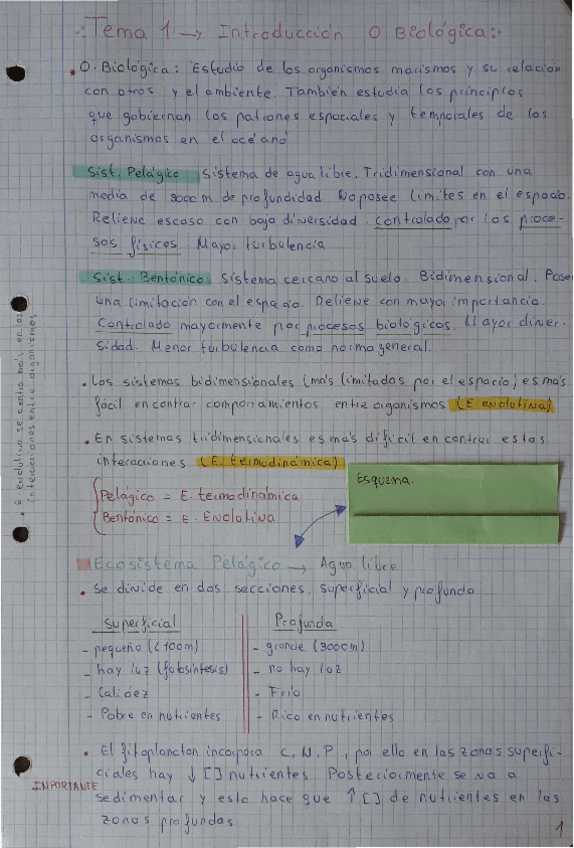 ∴ Tema 1 → Introducción O. Biológica ∴
• O. Biológica: Estudio de los organismos marismos y su relación
con otros y el ambiente. También estudia los principios
que gobiernan los patrones espaciales y temporales de los
organismos en el océano
Sist. Pelágico: Sistema de agua libre. Tridimensional con una
media de 3000m de profundidad. No posee límites en el espacio.
Relieve escaso con baja diversidad. Controlado por los proce-
sos físicos. Mayor turbulencia
Sist. Bentónico: Sistema cercano al suelo. Bidimensional. Posee
una limitación con el espacio. Relieve con mayor importancia.
Controlado mayormente por procesos biológicos. Mayor diver-
sidad. Menor turbulencia como norma general.
• E. evolutiva se centra más en las
interacciones entre organismos
• Los sistemas bidimensionales (más limitados por el espacio) es más
fácil encontrar comportamientos entre organismos (E. evolutiva)
• En sistemas tridimensionales es más difícil encontrar estas
interacciones (E. termodinámica)
Pelágico = E. termodinámica
Bentónico = E. Evolutiva
Esquema.
Ecosistema Pelágico → Agua libre
• Se divide en dos secciones, superficial y profunda
Superficial
- pequeño (<100m)
- hay luz (fotosíntesis)
- Calidez
- Pobre en nutrientes
Profunda
- grande (3000m)
- no hay luz
- Frío
- Rico en nutrientes
• El fitoplancton incorpora C, N, P, por ello en las zonas superfi-
ciales hay ↓ [] nutrientes. Posteriormente se va a
IMPORTANTE
sedimentar y esto hace que ↑ [] de nutrientes en las
zonas profundas.
1